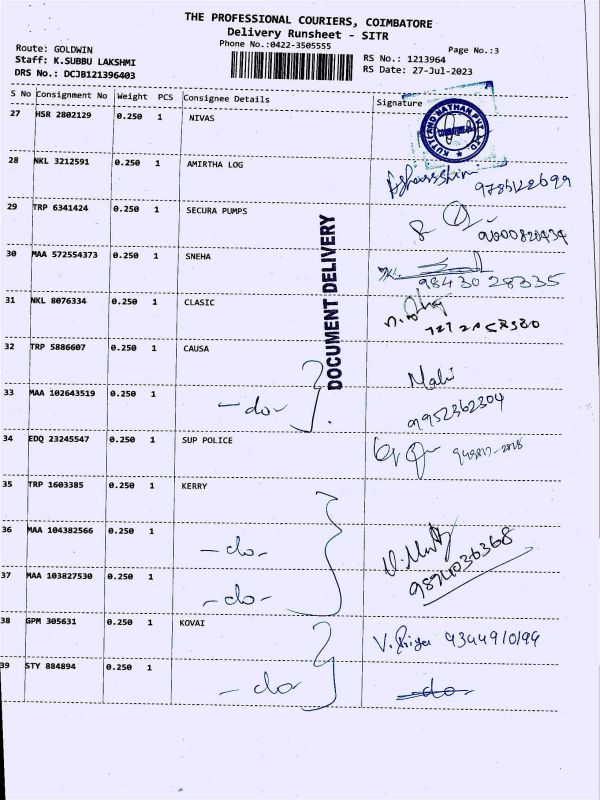 THE PROFESSIONAL COURIERS, COIMBATORE
Delivery Runsheet - SITR
Phone No.:0422-3505555
Page No.:3
Route: GOLDWIN
Staff: K.SUBBU LAKSHMI
DRS No.: DCJB121396403
RS No.: 1213964
RS Date: 27-Jul-2023
S No Consignment No Weight PCS Consignee Details Signature
27 HSR 2802129 0.250 1 NIVAS
28 NKL 3212591 0.250 1 AMIRTHA LOG
29 TRP 6341424 0.250 1 SECURA PUMPS
30 MAA 572554373 0.250 1 SNEHA 98430 28335
31 NKL 8076334 0.250 1 CLASIC
DOCUMENT DELIVERY
32 TRP 5886607 0.250 1 CAUSA Mali
33 MAA 102643519 0.250 1 -do- 9952362304
34 EDQ 23245547 0.250 1 SUP POLICE
35 TRP 1603385 0.250 1 KERRY
36 MAA 104382566 0.250 1 -do-
37 MAA 103827530 0.250 1 -do- 9894036368
38 GPM 305631 0.250 1 KOVAI V. Priya 9344910199
39 STY 884894 0.250 1 -do- -do-